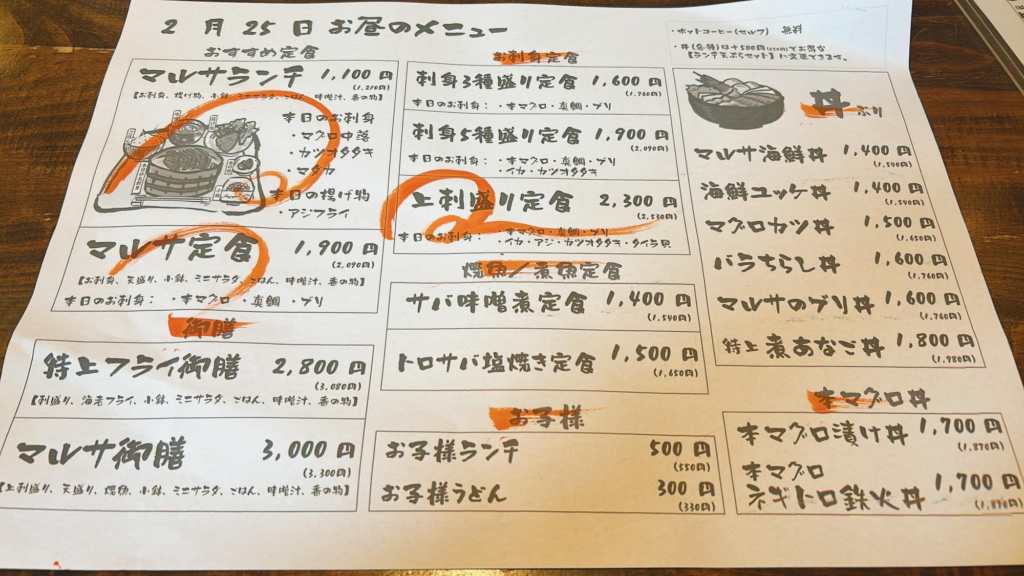 2月25日お昼のメニュー
おすすめ定食
マルサランチ 1,100円
(1,210円)
【お刺身、揚げ物、小鉢、ミニサラダ、ごはん、味噌汁、香の物】
本日のお刺身
・マグロ中落
・カツオタタキ
・マダカ
本日の揚げ物
・アジフライ
マルサ定食 1,900円
(2,090円)
【お刺身、天盛り、小鉢、ミニサラダ、ごはん、味噌汁、香の物】
本日のお刺身： ・本マグロ ・真鯛 ・ブリ
御膳
特上フライ御膳 2,800円
(3,080円)
【刺盛り、海老フライ、小鉢、ミニサラダ、ごはん、味噌汁、香の物】
マルサ御膳 3,000円
(3,300円)
【上刺盛り、天盛り、焼魚、小鉢、ミニサラダ、ごはん、味噌汁、香の物】
お刺身定食
刺身3種盛り定食 1,600円
(1,760円)
本日のお刺身： ・本マグロ・真鯛・ブリ
刺身5種盛り定食 1,900円
(2,090円)
本日のお刺身： ・本マグロ・真鯛・ブリ
・イカ・カツオタタキ
上刺盛り定食 2,300円
(2,530円)
本日のお刺身： ・本マグロ・真鯛・ブリ
・イカ・アジ・カツオタタキ・タイラ貝
焼魚/煮魚定食
サバ味噌煮定食 1,400円
(1,540円)
トロサバ塩焼き定食 1,500円
(1,650円)
お子様
お子様ランチ 500円
(550円)
お子様うどん 300円
(330円)
・ホットコーヒー(セルフ) 無料
・丼(各種)は+500円(550円)でお得な
【ランチ天ぷらセット】に変更できます。
丼ぶり
マルサ海鮮丼 1,400円
(1,540円)
海鮮ユッケ丼 1,400円
(1,540円)
マグロカツ丼 1,500円
(1,650円)
バラちらし丼 1,600円
(1,760円)
マルサのブリ丼 1,600円
(1,760円)
特上煮あなご丼 1,800円
(1,980円)
本マグロ丼
本マグロ漬け丼 1,700円
(1,870円)
本マグロ
ネギトロ鉄火丼 1,700円
(1,870円)